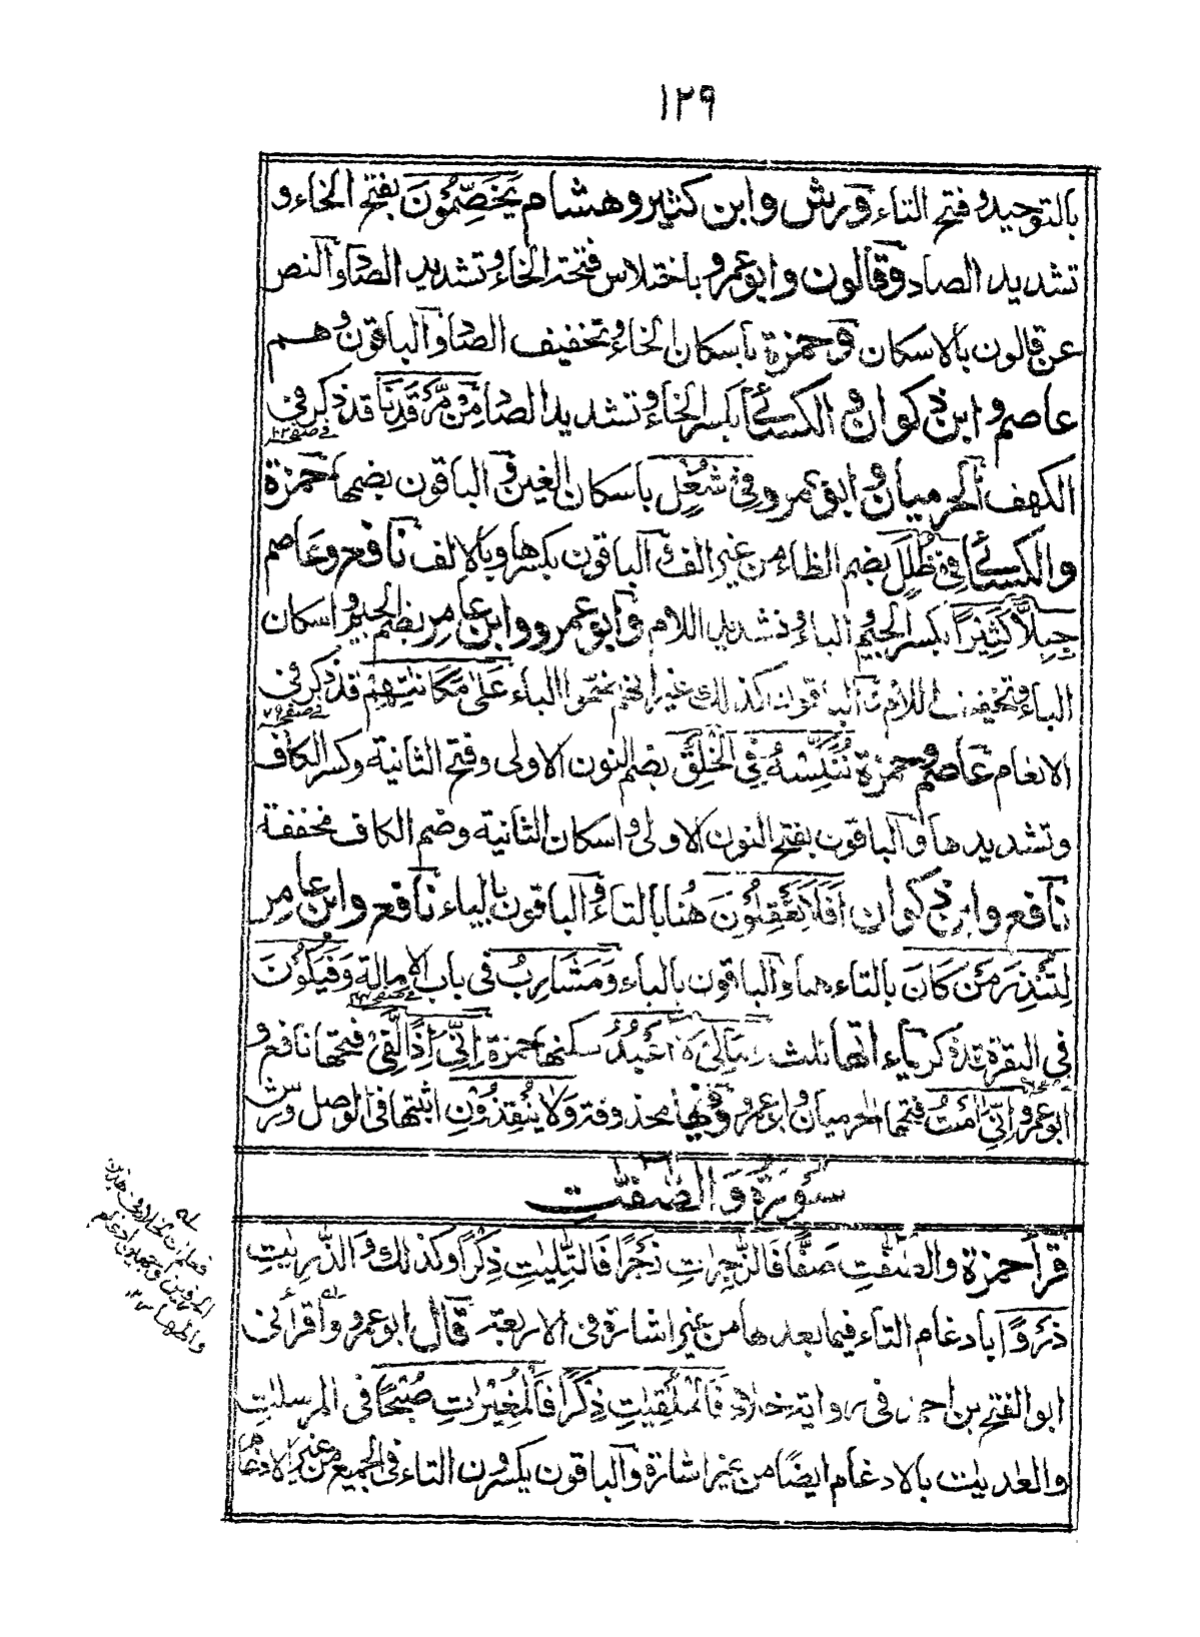 ١٢٩
بالتوحيد وفتح التاء ورش وابن كثير وهشام يَخَصِّمُونَ بفتح الخاء و
تشديد الصاد وقالون وابو عمرو باختلاس فتحة الخاء وتشديد الصاد والنص
عن قالون بالاسكان وحمزة باسكان الخاء وتخفيف الصاد والباقون وهم
عاصم وابن ذكوان والكسائي بكسر الخاء وتشديد الصاد مِنْ مَّرْقَدِنَا قد ذكر فى
فى صفحه ١٠٢
الكهف الحرميان وابو عمرو فِىْ شُغْلٍ باسكان الغين والباقون بضمها حمزة
والكسائي فِىْ ظُلَلٍ بضم الظاء من غير الف والباقون بكسرها وبالالف نافع وعاصم
جِبِلًّا كَثِيْرًا بكسر الجيم والباء وتشديد اللام وابو عمرو وابن عامر بضم الجيم واسكان
الباء وتخفيف اللام والباقون كذلك غير انهم ضموا الباء عَلٰى مَكَانَتِهِمْ قد ذكر فى
فى صفحه ٧٦
الانعام عاصم وحمزة نُنَكِّسْهُ فِى الْخَلْقِ بضم النون الاولى وفتح الثانية وكسر الكاف
وتشديدها والباقون بفتح النون الاولى واسكان الثانية وضم الكاف مخففة
نافع وابن ذكوان اَفَلَا تَعْقِلُوْنَ هُنا بالتاء والباقون بالياء نافع وابن عامر
لِتُنْذِرَ مَنْ كَانَ بالتاء هنا والباقون بالياء وَمَشَارِبُ فى باب الامالة وَفَيَكُوْنَ
فى البقرة قد ذكر ياءاتها ثلث وَمَالِىَ لَا اَعْبُدُ سكنها حمزة اِنِّىْ اِذًا لَّفِىْ فتحها نافع و
ابو عمرو اِنِّىْ اٰمَنْتُ فتحها الحرميان وابو عمرو وفيها محذوفة وَلَا يُنْقِذُوْنِ اثبتها فى الوصل ورش
سُوْرَةُ وَالصّٰفّٰت
قرأ حمزة والصّٰفّٰتِ صَفًّا فَالزّٰجِرٰتِ زَجْرًا فَالتّٰلِيٰتِ ذِكْرًا وكذلك وَالذّٰرِيٰتِ
ذَرْوًا بادغام التاء فيما بعدها من غير اشارة فى الاربعة قال ابو عمرو واقرأنى
ابو الفتح بن احمد فى رواية خلاد فَالْمُلْقِيٰتِ ذِكْرًا فَالْمُغِيْرٰتِ صُبْحًا فى المرسلٰت
والعٰديٰت بالادغام ايضًا من غير اشارة والباقون يكسرون التاء فى الجميع من غير الادغام
له